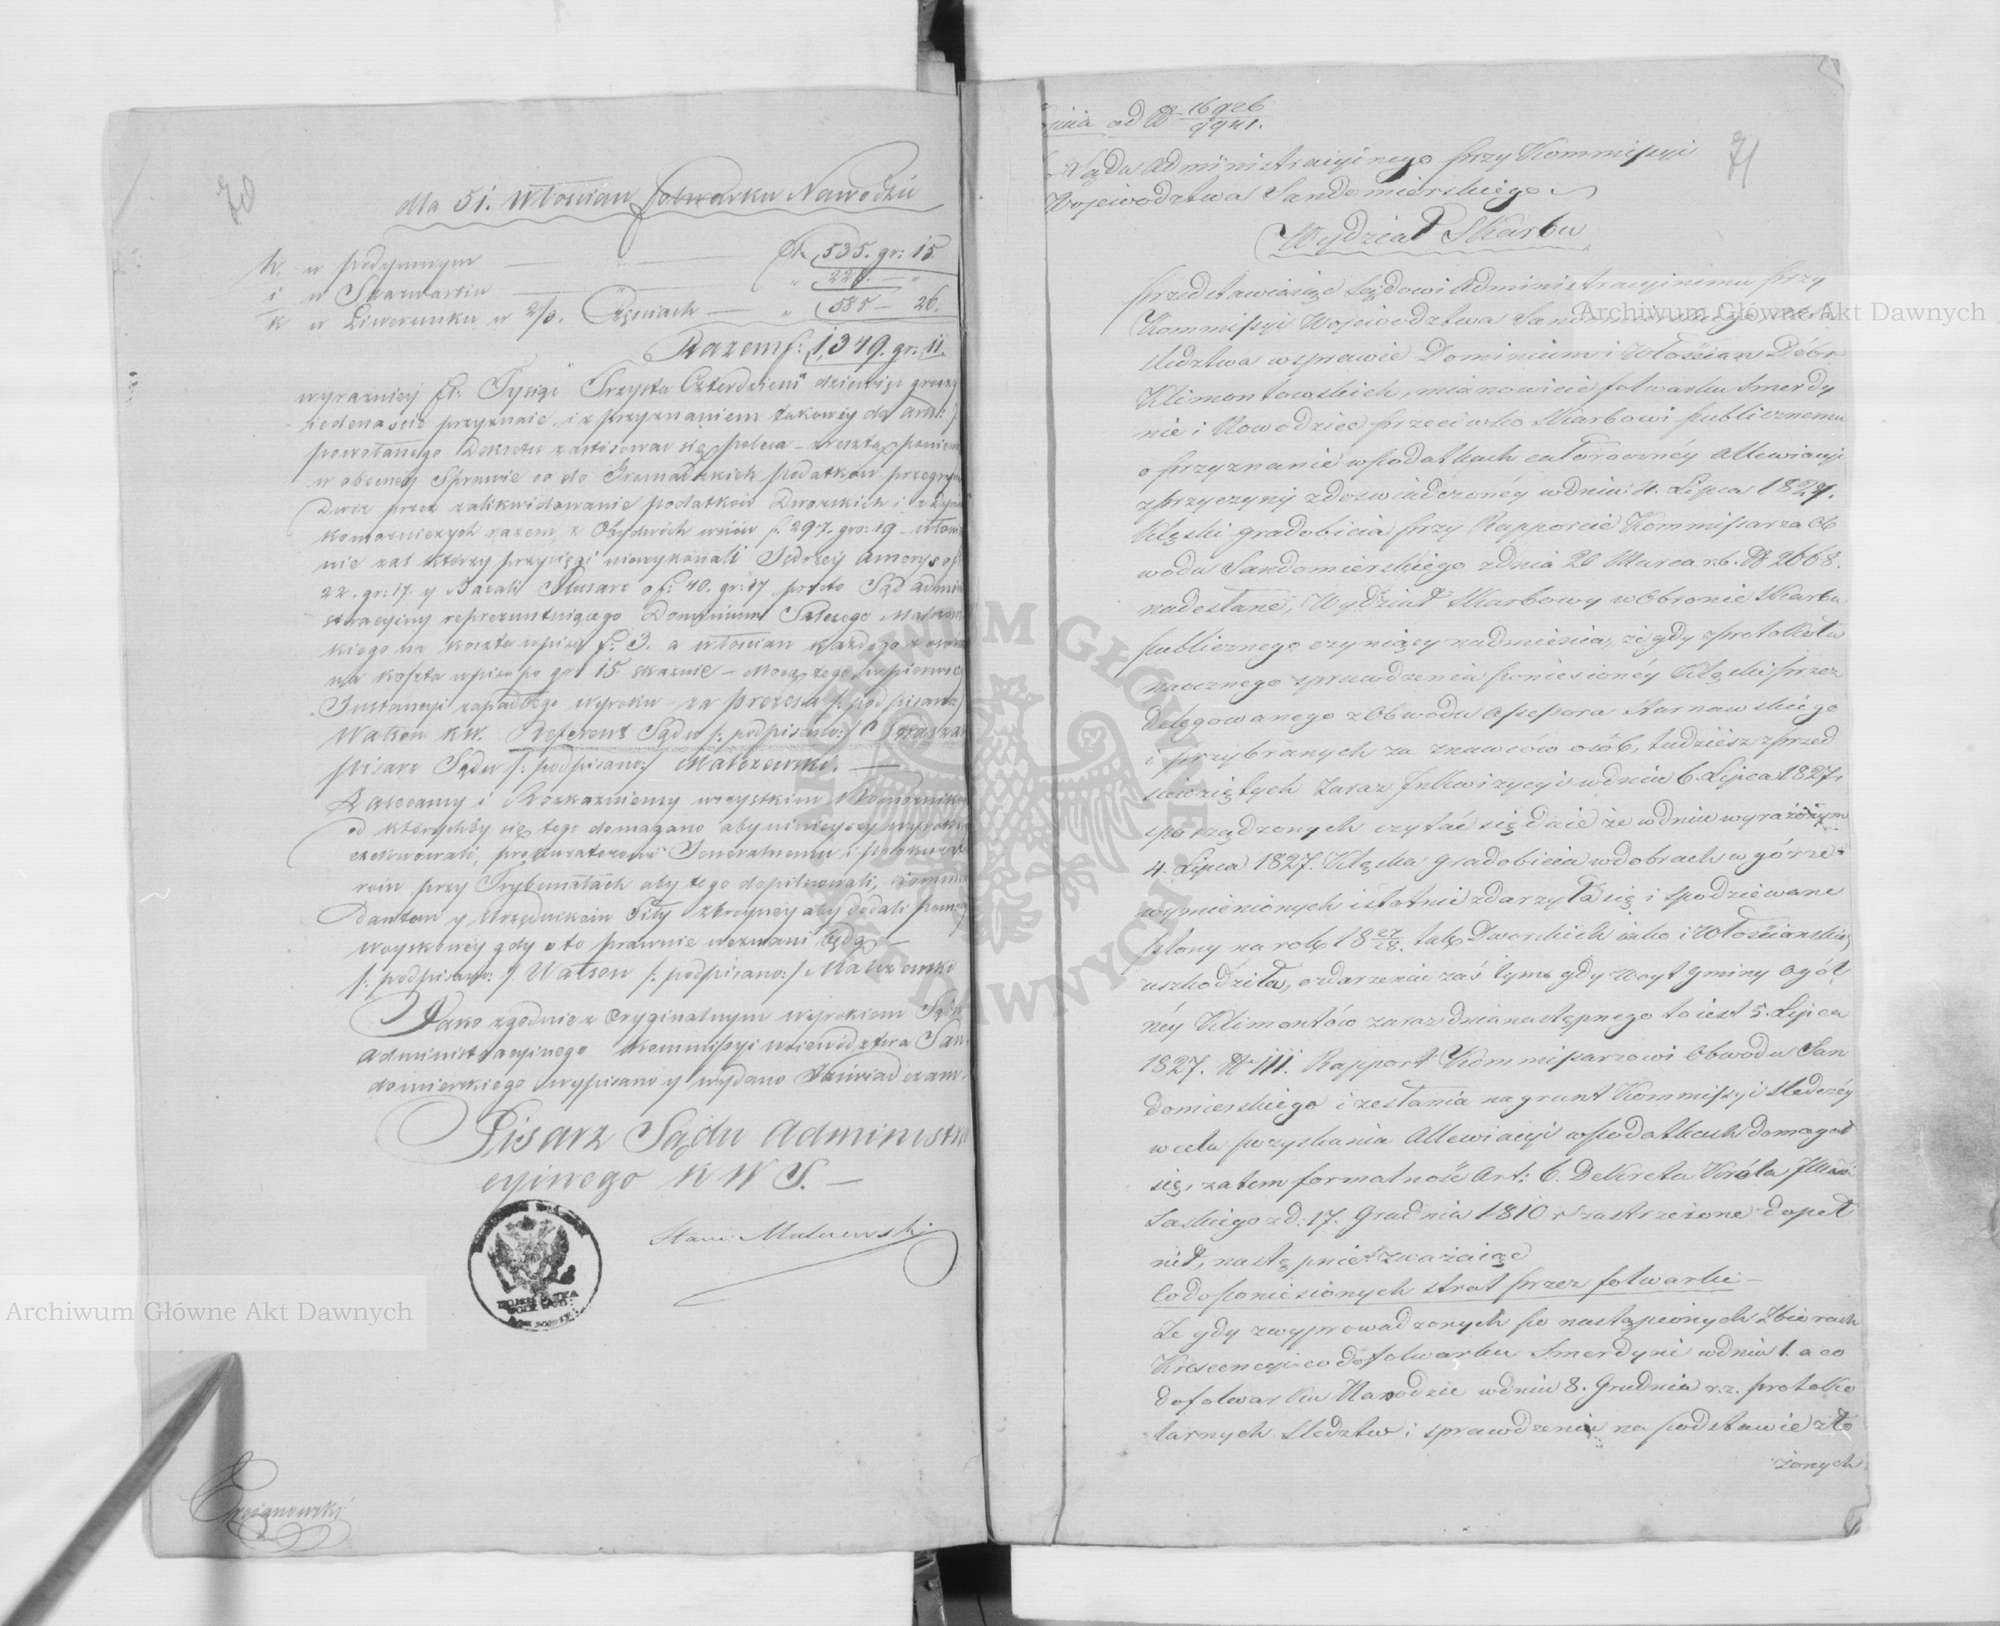 70
dla 51. Włościan folwarku Nawodzie
h. w podymnym — fl. 535. gr: 15
i w Szarwarku — " 228 — "
k w Liwerunku w 2/3. Częściach — " 585 — 26.
Razem f: 1,349. gr: 11.
wyrazniey fl: Tysiąc Trzysta Czterdzieści dziewięć groszy
iedenaście przyznaie i z przyznaniem takowey do Art:
powołanego Dekretu zastosować się poleca — zresztą
w obecney Sprawie co do Gromadzkich podatków
Dwór przez zalikwidowanie podatków Dworskich i
komorniczych razem z Obydwóch wsiów f. 297. gro: 19 —
nie zaś którzy przysięgi niewykonali Jędrzey
22. gr: 17. y Jakub Slusarz o f: 40. gr: 17 przeto Sąd Admini
stracyiny reprezentuiącego Dominium
kiego na koszta wpisu f: 3. a włościan każdego z
na koszta wpisu po gr: 15 skazuie — Mocą tego w pierwszey
Instancyi zapadłego wyroku — za prezesa /: podpisano:/
Watson K.W. Referent Sądu /: podpisano:/
pisarz Sądu /: podpisano:/ Malczewski. —
Zalecamy i Rozkazuiemy wszystkim Komornikom
od którychby się tego domagano aby ninieyszy wyrok
exekwowali, prokuratorowi Jeneralnemu i prokurato
rom przy Trybunałach aby tego dopilnowali, Kommen
dantom y Urzędnikom Siły zbroyney aby dodali pomocy
woyskowey gdy o to prawnie wezwani będą —
/: podpisano: /. Watson /: podpisano:/ Malczewski
Jako zgodnie z Oryginalnym wyrokiem Sądu
Administracyinego Kommissyi Woiewództwa San
domierskiego wypisano y wydano Zaświadczam.
Pisarz Sądu Administra
cyinego K W S. —
Stan: Malczewski
71
od № 16926/9941.
Sądu Administracyinego przy Kommissyi
Wojewodztwa Sandomierskiego
Wydział Skarbu
Przedstawiaiąc Sądowi Administracyinemu przy
Kommissyi Wojewodztwa Sandomierskiego
sledztwa w sprawie Dominium i Włościan Dóbr
Klimontowskich, mianowicie folwarku Smerdy
nie i Nawodzie przeciwko Skarbowi publicznemu
o przyznanie w podatkach całorocznéy Allewiacyi
z przyczyny zdoswiadczonéy w dniu 4. Lipca 1827.
klęski gradobicia przy Rapporcie Kommissarza Ob
wodu Sandomierskiego z dnia 20 Marca r.b. № 2668.
nadesłane, Wydział Skarbowy w Obronie Skarbu
publicznego czyniący nadmienia, że gdy z protokołu
naocznego sprawdzenia poniesionéy klęski przez
delegowanego z Obwodu Assessora Starnawskiego
i przybranych za znawców osób, tudzież z przed
siewziętych zaraz Inkwizycyi w dniu 6. Lipca 1827.
sporządzonych czytać się daie że w dniu wyrażonym
4. Lipca 1827. klęska gradobicia w dobrach w górze
wymienionych istotnie zdarzyła się i spodziewane
plony na rok 18 27/28. tak Dworskich iako i Włościańskich
uszkodziła, o zdarzeniu zaś tym gdy Woyt gminy Ogól
néy Klimontów zaraz dnia następnego to iest 5. Lipca
1827. № 111. Rapport Kommissarzowi Obwodu San
domierskiego i zesłania na grunt Kommissyi sledczéy
w celu pozyskania Allewiacyi w podatkach domagał
się, zatem formalność Art: 6. Dekretu Króla JMci
Saskiego z d: 17. Grudnia 1810 r zastrzeżone dopeł
nił, następnie zważaiąc
Co do poniesionych strat przez folwarki —
że gdy z wyprowadzonych po nastąpionych zbiorach
Krescencyi co do folwarku Smerdyni w dniu 1. a co
do folwarku Nawodzie w dniu 8. Grudnia r.z. protokó
larnych sledztw i sprawdzenia na podstawie zło
żonych
Archiwum Główne Akt Dawnych
Archiwum Główne Akt Dawnych
ARCHIWUM GŁÓWNE AKT DAWNYCH